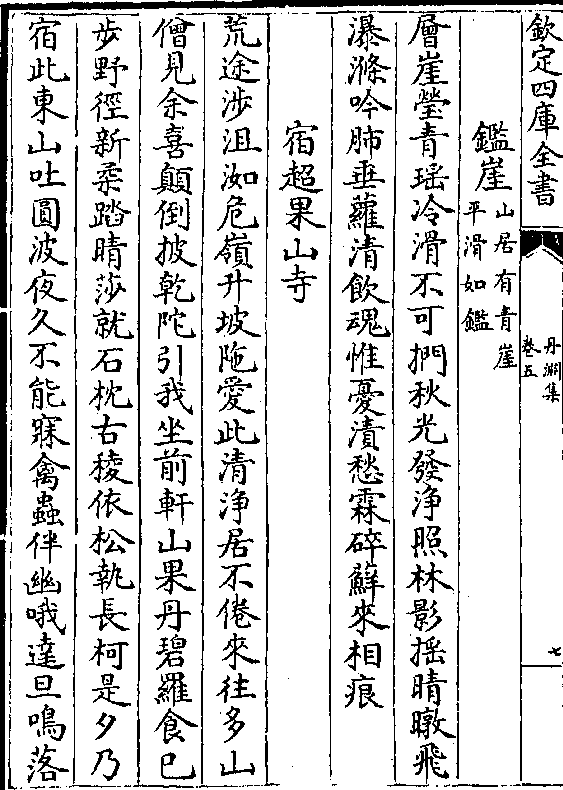 欽定四庫全書
丹淵集
卷五
七
鑑崖
山居有青崖
平滑如鑑
層崖瑩青瑶冷滑不可捫秋光發浄照林影揺晴暾飛
瀑滌吟肺垂蘿清飲魂惟憂漬愁霖碎蘚來相痕
宿超果山寺
荒途渉沮洳危嶺升坡陁愛此清浄居不倦來往多山
僧見余喜顛倒披乾陀引我坐前軒山果丹碧羅食已
歩野徑新柔踏晴莎就石枕古稜依松執長柯是夕乃
宿此東山吐圓波夜久不能寐禽蟲伴幽哦達旦鳴落